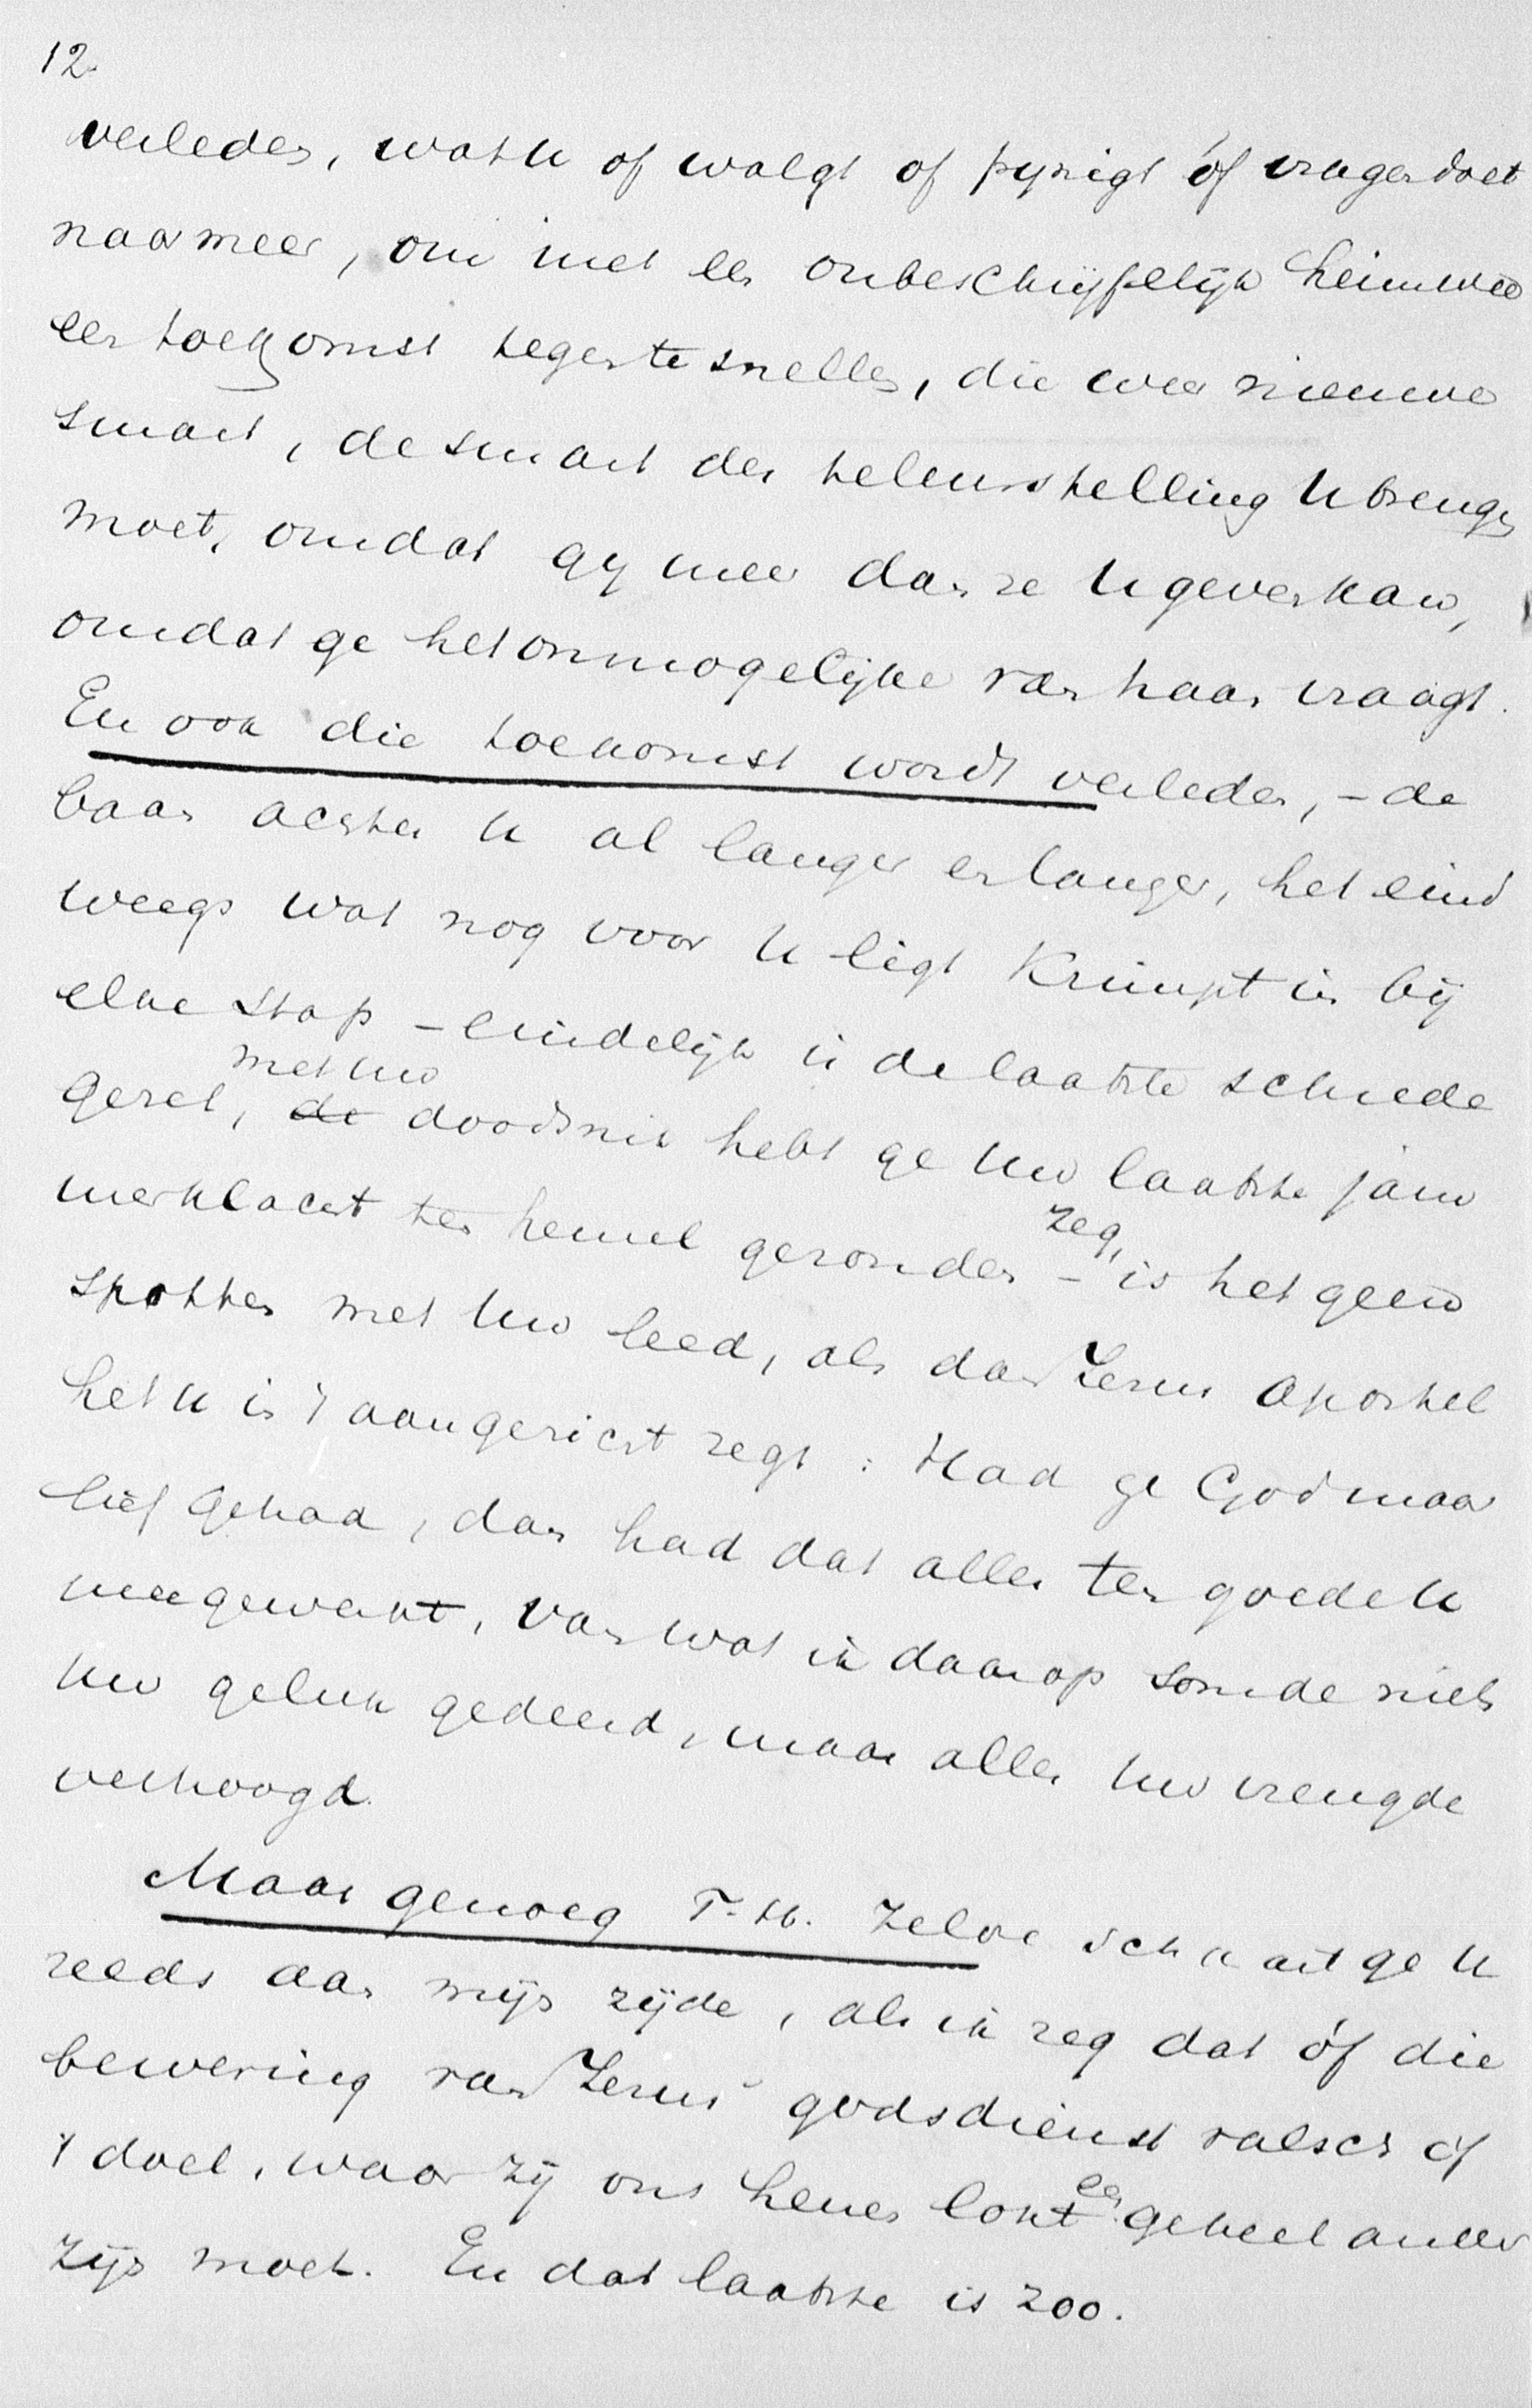 12.
verleden, wat u of walgt of pynigt óf vragen doet
naar meer, om met een onbeschrijfelijk heimwee
een toekomst tegen te snellen, die weer nieuwe
smart, de smart der teleurstelling U brengen
moet, omdat gy meer dan ze U geven kan,
omdat ge het onmogelijke van haar vraagt.
En ook die toekomst wordt verleden, – de
baan achter U al langer en langer, het eind
weegs wat nog voor U ligt krimpt in bij
elke stap – eindelijk is de laatste schrede
met uw
gezet, de doodsnik hebt ge Uw laatste jam
merklacht ten hemel gezonden – zeg, is het geen
spotten met Uw leed, als dan Jezus apostel
het U in 't aangezicht zegt : Had ge God maar
lief gehad, dan had dat alles ten goede U
meegewerkt, van wat ik daar op somde niets
Uw geluk gedeerd, maar alles Uw vreugde
verhoogd.
Maar genoeg T. H. Zelve schaart ge U
reeds aan mijn zijde, als ik zeg dat óf die
bewering van Jezus' godsdienst valsch óf
't doel, waar zij ons henen lokt een geheel ander
zijn moet. En dat laatste is zoo.